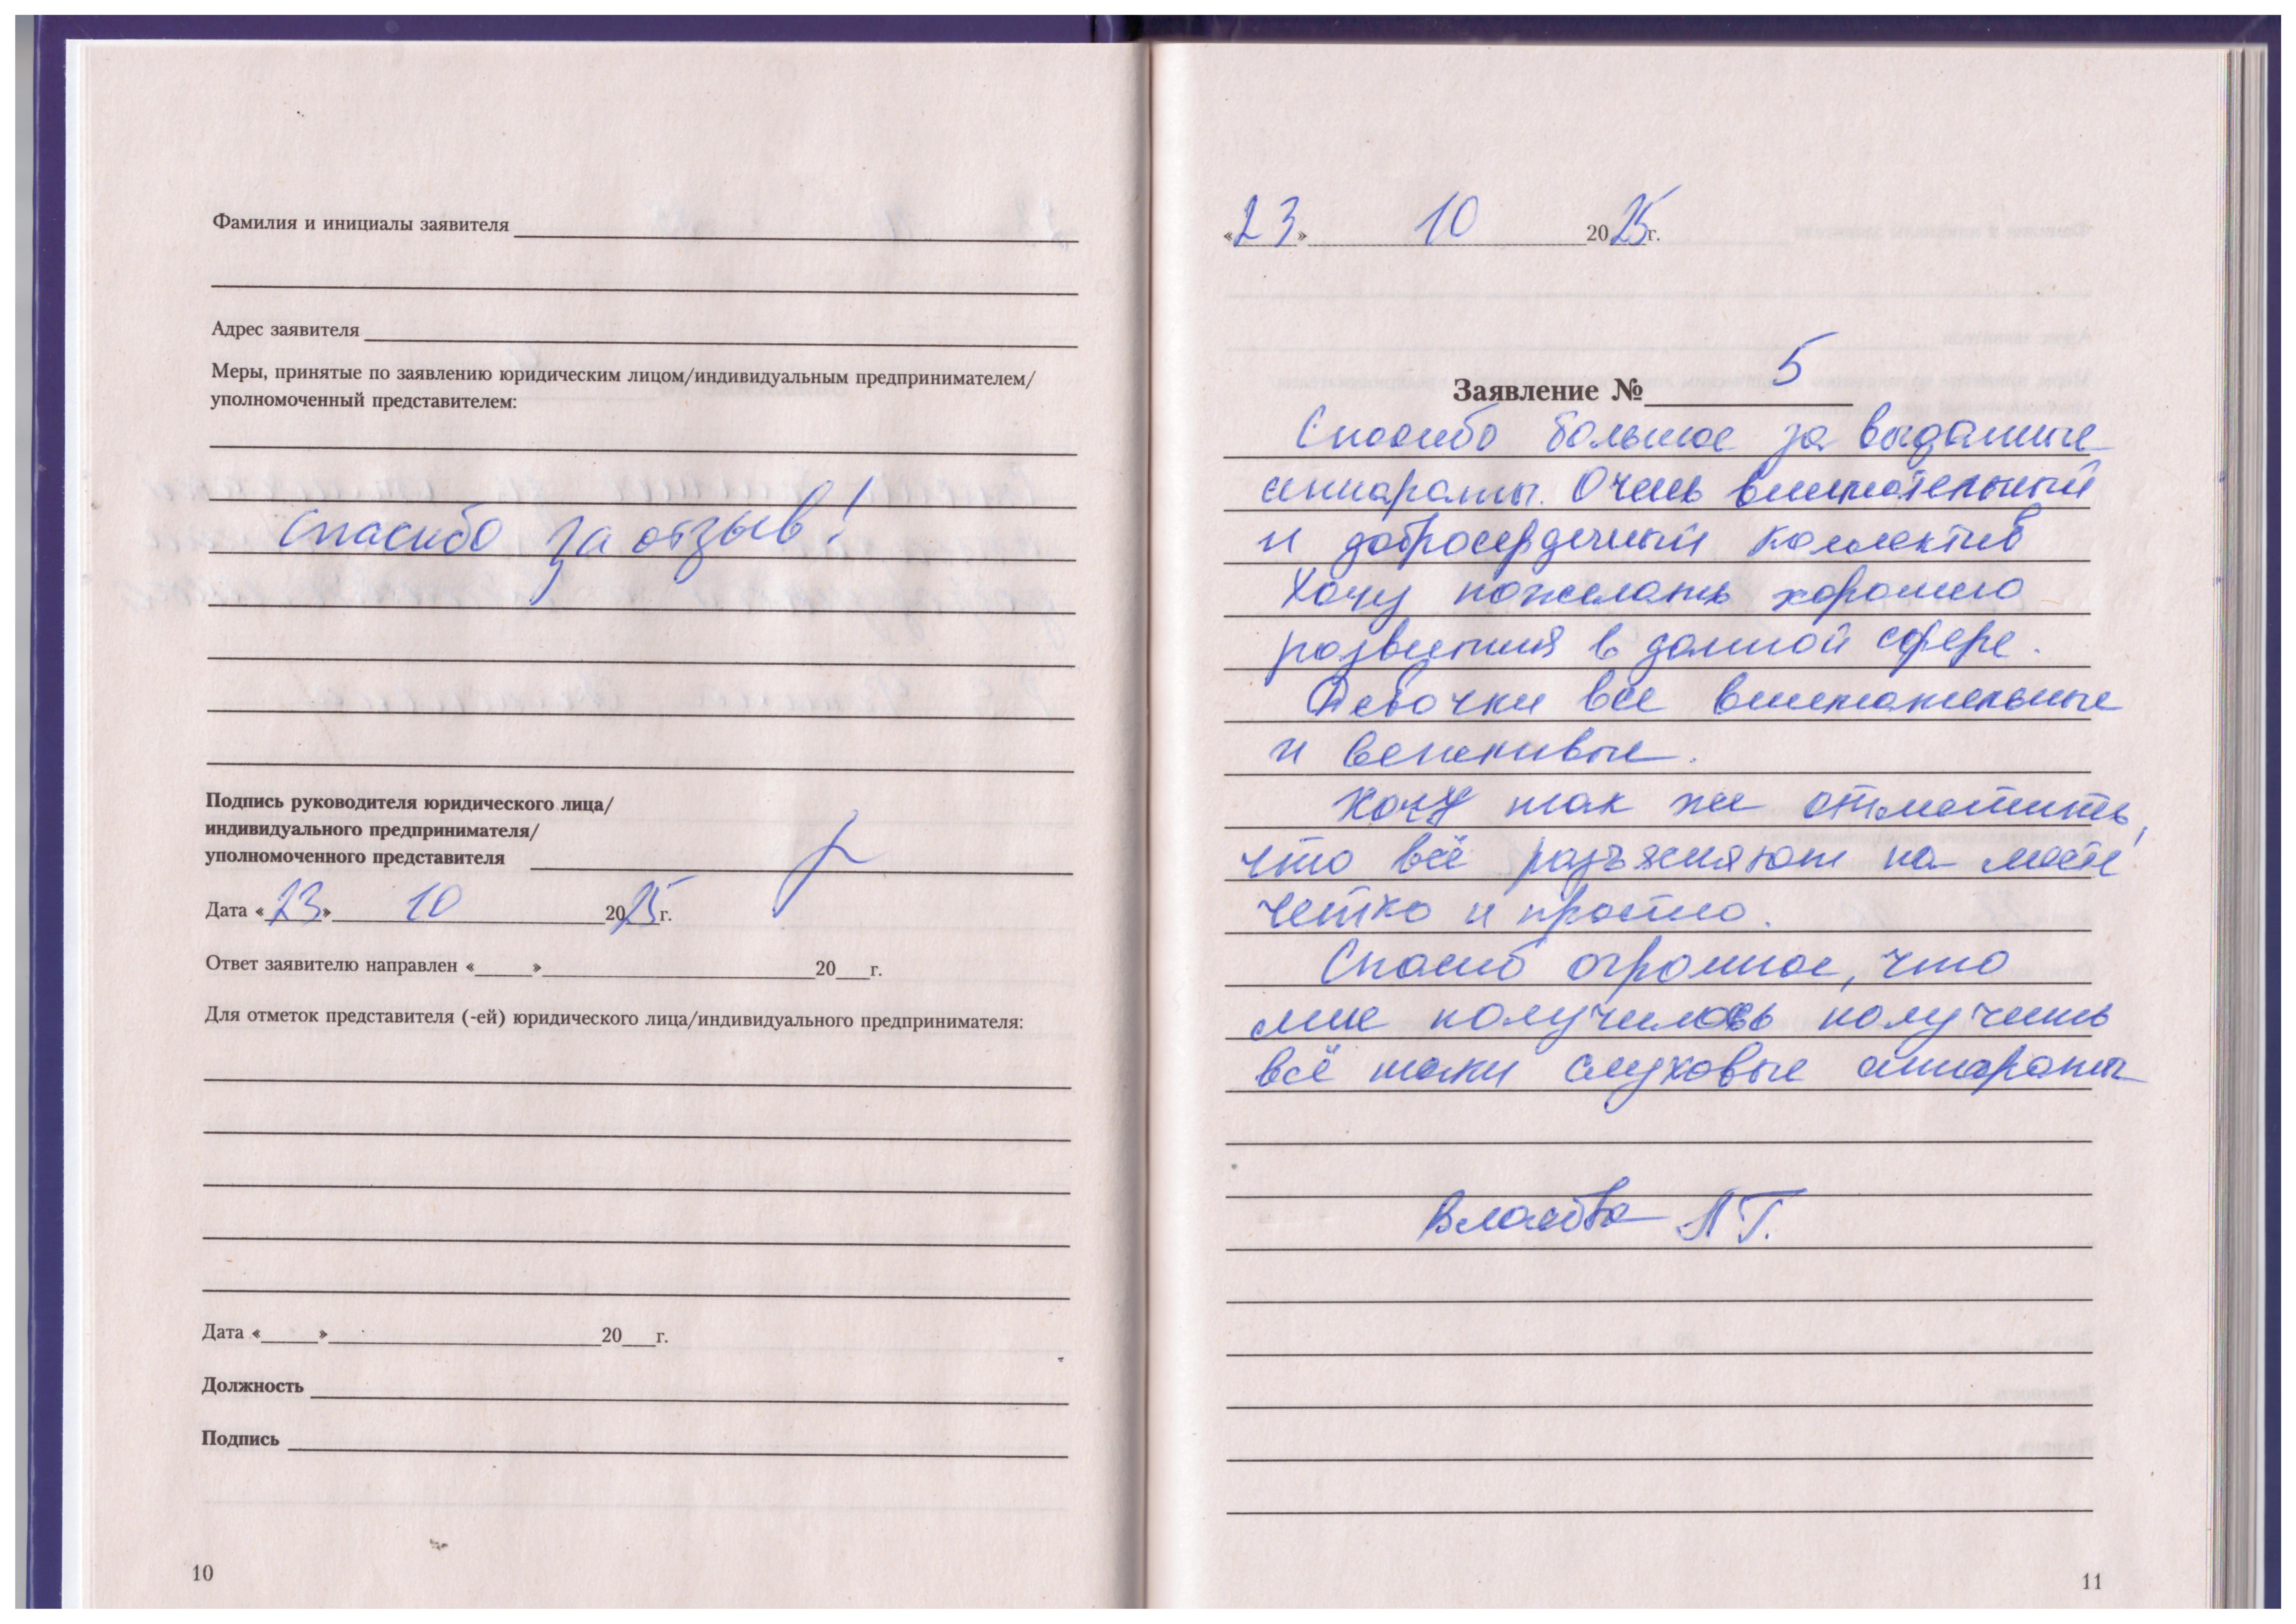 Фамилия и инициалы заявителя
Адрес заявителя
Меры, принятые по заявлению юридическим лицом/индивидуальным предпринимателем/
уполномоченный представителем:
Спасибо за отзыв!
Подпись руководителя юридического лица/
индивидуального предпринимателя/
уполномоченного представителя
Дата «23» 10 2025г.
Ответ заявителю направлен «   » 20   г.
Для отметок представителя (-ей) юридического лица/индивидуального предпринимателя:
Дата «   » 20   г.
Должность
Подпись
10
«23» 10 2025г.
Заявление № 5
Спасибо большое за выданные
аппараты. Очень внимательный
и добросердечный коллектив
Хочу пожелать хорошего
развития в данной сфере.
Девочки все внимательные
и вежливые.
Хочу так же отметить,
что всё разъясняют на месте
четко и просто.
Спасиб огромное, что
мне получилось получить
всё таки слуховые аппараты
Власова Л Г.
11